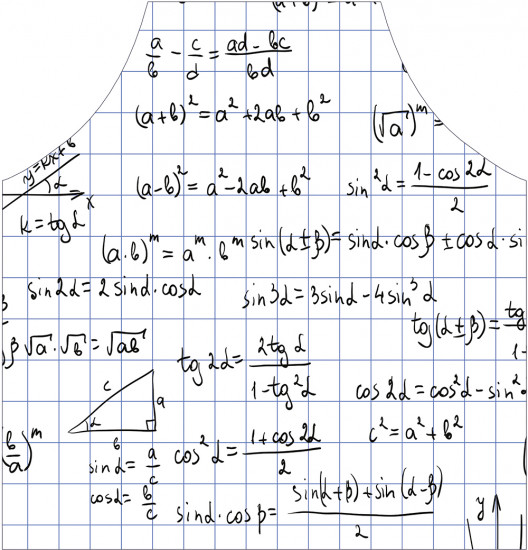 a/b - c/d = ad - bc/bd
(a+b)² = a² + 2ab + b²
(√a)ᵐ =
y=kx+b
α
x
k = tg α
(a-b)² = a² - 2ab + b²
sin²α = 1 - cos 2α/2
(a·b)ᵐ = aᵐ · bᵐ
sin(α±β) = sinα · cosβ ± cosα · si
sin2α = 2 sinα · cosα
sin3α = 3sinα - 4sin³α
β √a · √b = √ab
tg 2α = 2tg α/1 - tg²α
tg(α±β) = tg/1-
cos 2α = cos²α - sin²
c
a
α
b
c² = a² + b²
(b/a)ᵐ
sinα = a/c
cosα = b/c
cos²α = 1 + cos 2α/2
sinα · cosβ = sin(α+β) + sin(α-β)/2
y